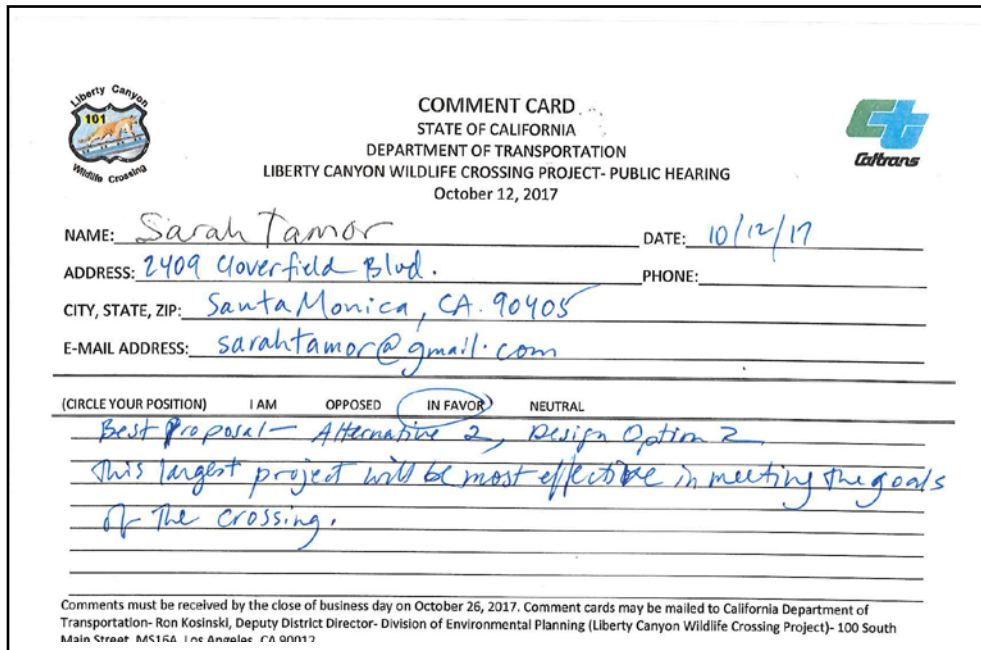 Liberty Canyon
101
Wildlife Crossing
COMMENT CARD
STATE OF CALIFORNIA
DEPARTMENT OF TRANSPORTATION
LIBERTY CANYON WILDLIFE CROSSING PROJECT- PUBLIC HEARING
October 12, 2017
Ct
Caltrans
NAME: Sarah Tamor DATE: 10/12/17
ADDRESS: 2409 Cloverfield Blvd. PHONE:
CITY, STATE, ZIP: Santa Monica, CA. 90405
E-MAIL ADDRESS: sarahtamor@gmail.com
(CIRCLE YOUR POSITION) I AM OPPOSED IN FAVOR NEUTRAL
Best Proposal - Alternative 2, Design Option 2
This largest project will be most effective in meeting the goals
of the crossing.
Comments must be received by the close of business day on October 26, 2017. Comment cards may be mailed to California Department of
Transportation- Ron Kosinski, Deputy District Director- Division of Environmental Planning (Liberty Canyon Wildlife Crossing Project)- 100 South
Main Street, MS16A, Los Angeles, CA 90012